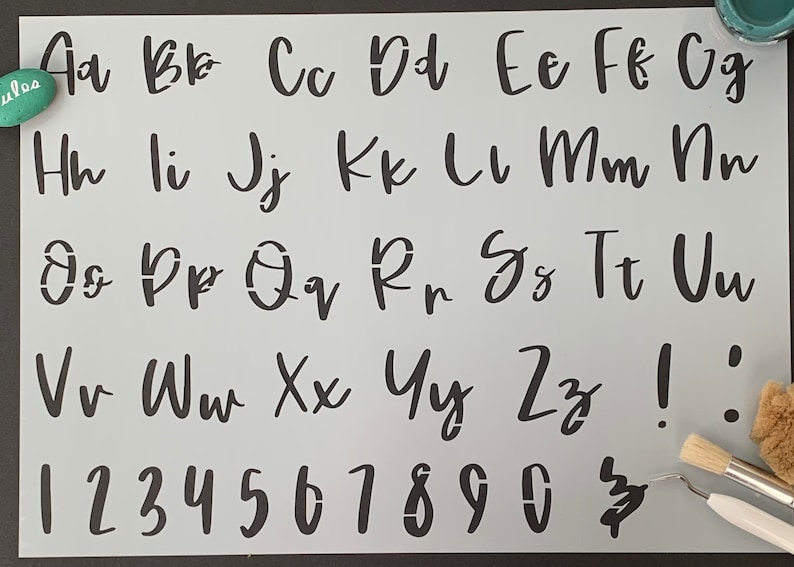 Aa Bb Cc Dd Ee Ff Gg
Hh Ii Jj Kk Ll Mm Nn
Oo Pp Qq Rr Ss Tt Uu
Vv Ww Xx Yy Zz ! :
1 2 3 4 5 6 7 8 9 0 &